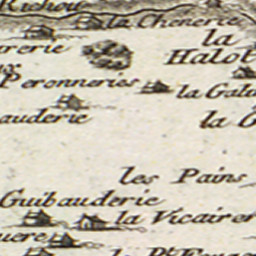 Richou
la Chenerie
rerie
la
Halot
x
Peronneries
la Galu
auderie
la G
les Pains
Guibauderie
la Vicairer
uere
la Pt